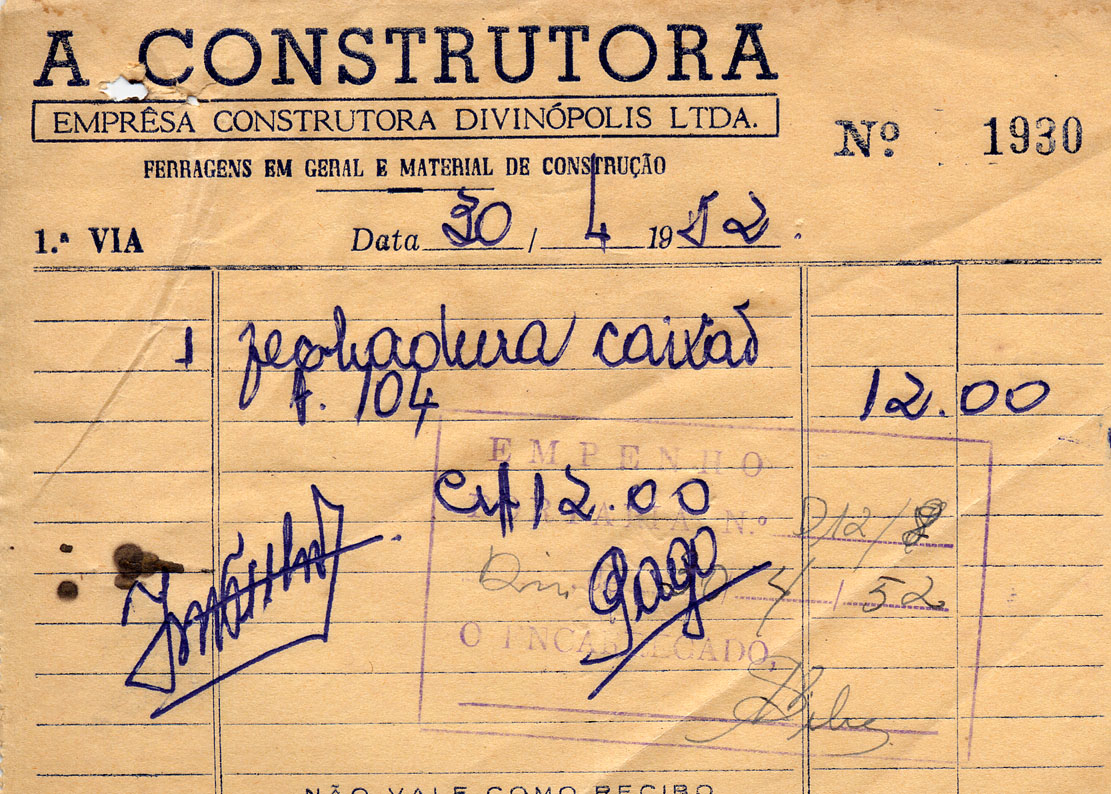 A CONSTRUTORA
EMPRÊSA CONSTRUTORA DIVINÓPOLIS LTDA.
FERRAGENS EM GERAL E MATERIAL DE CONSTRUÇÃO
Nº 1930
1.ª VIA Data 30 / 4 1952.
1 fechadura caixão
f. 104 12.00
EMPENHO
Cr$ 12.00
PORTARIA N.º 212/8
Pago
4 / 52
O ENCARREGADO,
NÃO VALE COMO RECIBO